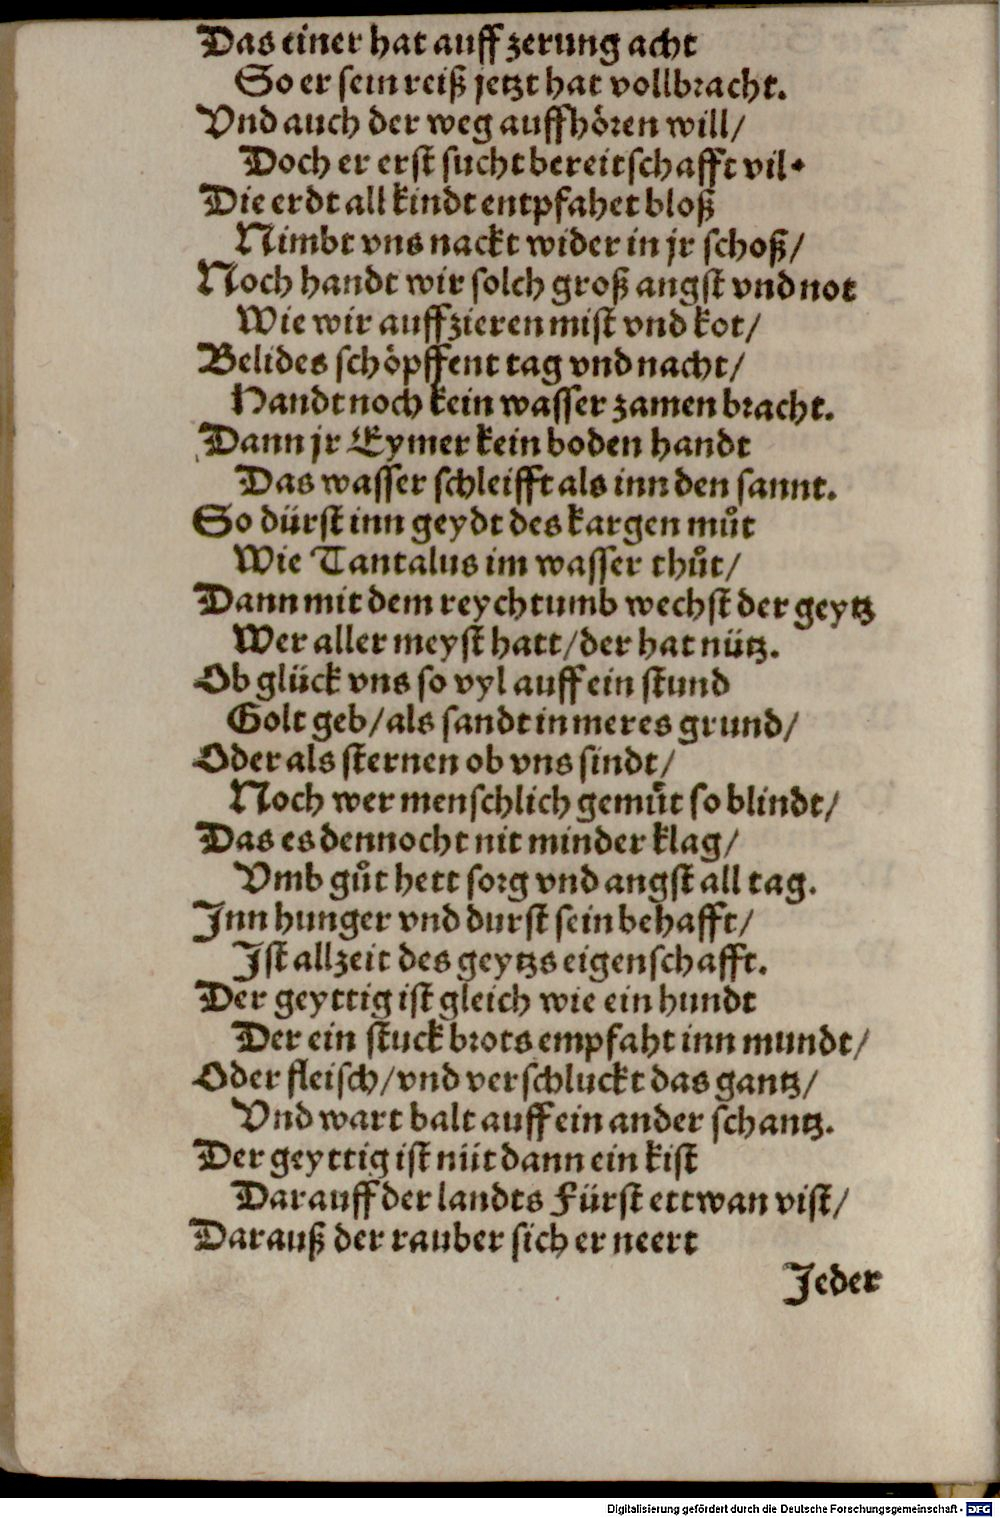 Das einer hat auff zerung acht
So er sein reiß jetzt hat vollbracht.
Vnd auch der weg auffhören will/
Doch er erst sucht bereitschafft vil.
Die erdt all kindt entpfahet bloß
Nimbt vns nackt wider in jr schoß/
Noch handt wir solch groß angst vnd not
Wie wir auffzieren mist vnd kot/
Belides schöpffent tag vnd nacht/
Handt noch kein wasser zamen bracht.
Dann jr Eymer kein boden handt
Das wasser schleifft als inn den sannt.
So dürst inn geydt des kargen můt
Wie Tantalus im wasser thůt/
Dann mit dem reychtumb wechst der geytz
Wer aller meyst hatt/der hat nütz.
Ob glück vns so vyl auff ein stund
Golt geb/als sandt in meres grund/
Oder als sternen ob vns sindt/
Noch wer menschlich gemüt so blindt/
Das es dennocht nit minder klag/
Vmb gůt hett sorg vnd angst all tag.
Inn hunger vnd durst sein behafft/
Ist allzeit des geytzs eigenschafft.
Der geyttig ist gleich wie ein hundt
Der ein stuck brots empfaht inn mundt/
Oder fleisch/vnd verschluckt das gantz/
Vnd wart balt auff ein ander schantz.
Der geyttig ist nüt dann ein kist
Darauff der landts Fürst ettwan vist/
Darauß der rauber sich er neert
Jeder
Digitalisierung gefördert durch die Deutsche Forschungsgemeinschaft - DFG